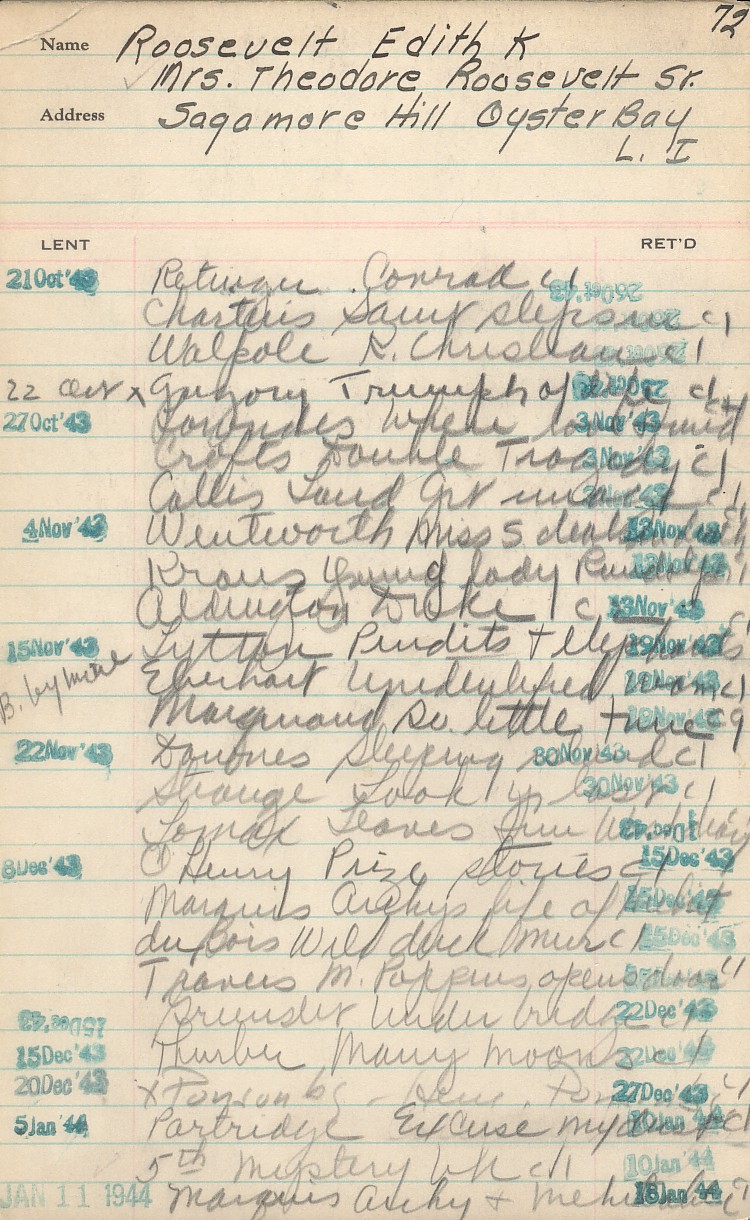 72
Name Roosevelt Edith K
Mrs. Theodore Roosevelt Sr.
Address Sagamore Hill Oyster Bay
L. I
LENT RET'D
21Oct'43 Conrad c1 26Oct'43
Charteris Saint steps in c1
Walpole K. Christians c1
22 Oct x Gregory Triumph of c1
27Oct'43 Lowndes Where love 3Nov'43
Crofts Double Tragedy c1 3Nov'43
Land Grt c1
4Nov'43 Wentworth Miss S deals 13Nov'43
Kraus Young lady Randolph
Aldington Duke 1 c 13Nov'43
15Nov'43 Lytton Pundits + Elephants 19Nov'43
B. by mine
Eberhart Unidentified Woman c1 19Nov'43
Marquand So little time c9 19Nov'43
22Nov'43 Sleeping c1 30Nov'43
Strange Look yr last c1 30Nov'43
Lomax Leaves fun
8Dec'43 O Henry Prize stories c1 15Dec'43
Marquis Archys life of Mehit 15Dec'43
du Bois Wild duck Mur c1 15Dec'43
Travers M. Poppins opens door c1
15Dec'43 Under bridge c1 22Dec'43
15Dec'43 Thurber Many moons c1 22Dec'43
20Dec'43 x Ponsonby 27Dec'43
5Jan'44 Partridge Excuse my dust c1 10Jan'44
5th Mystery bk c1 10Jan'44
JAN 11 1944 Marquis Archy + Mehitabel 18Jan'44